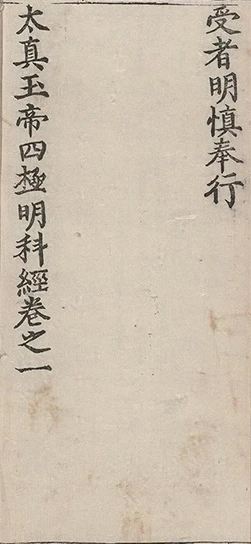 受者明慎奉行
太真玉帝四極明科經卷之一